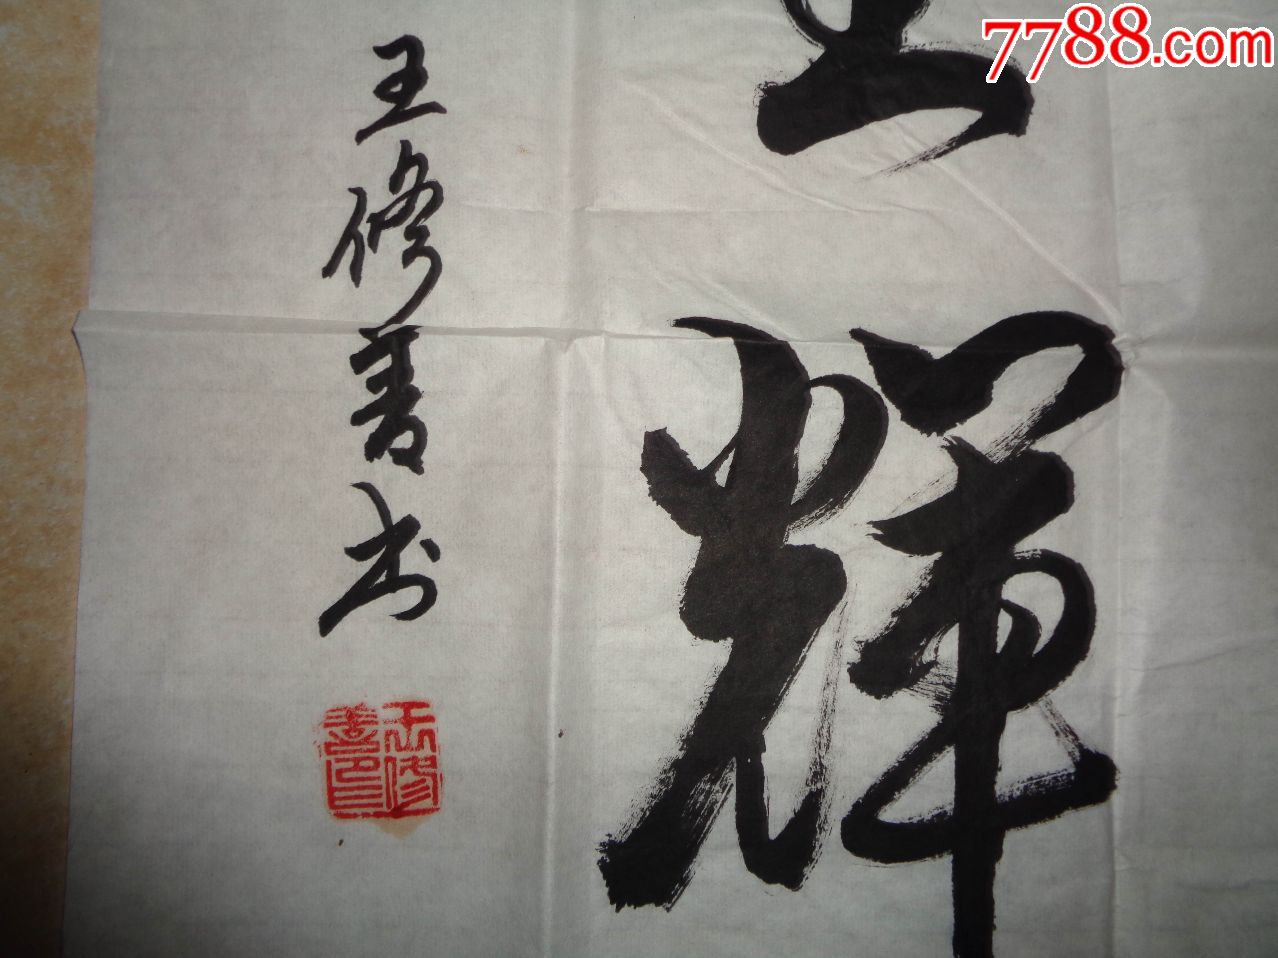 7788.com
輝
王修善书
王修善印